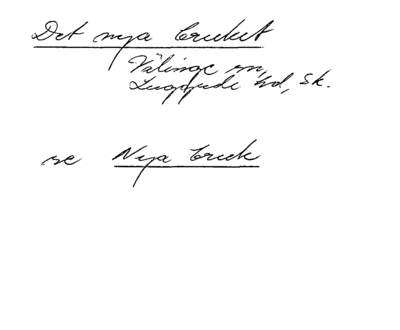 Det nya bruket
Välinge sn,
Luggude hd, Sk.
se Nya bruk